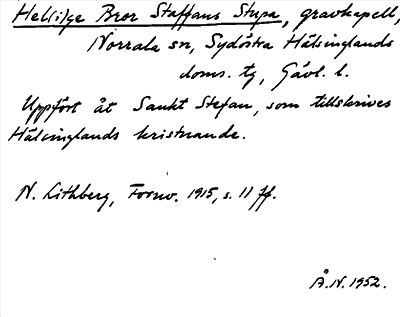 Helige Bror Staffans Stupa, gravkapell,
Norrala sn, Sydöstra Hälsinglands
doms. tg, Gävl. l.
Uppfört åt Sankt Stefan, som tillskrives
Hälsinglands kristnande.
N. Lithberg, Fornv. 1915, s. 11 ff.
Å.N. 1952.